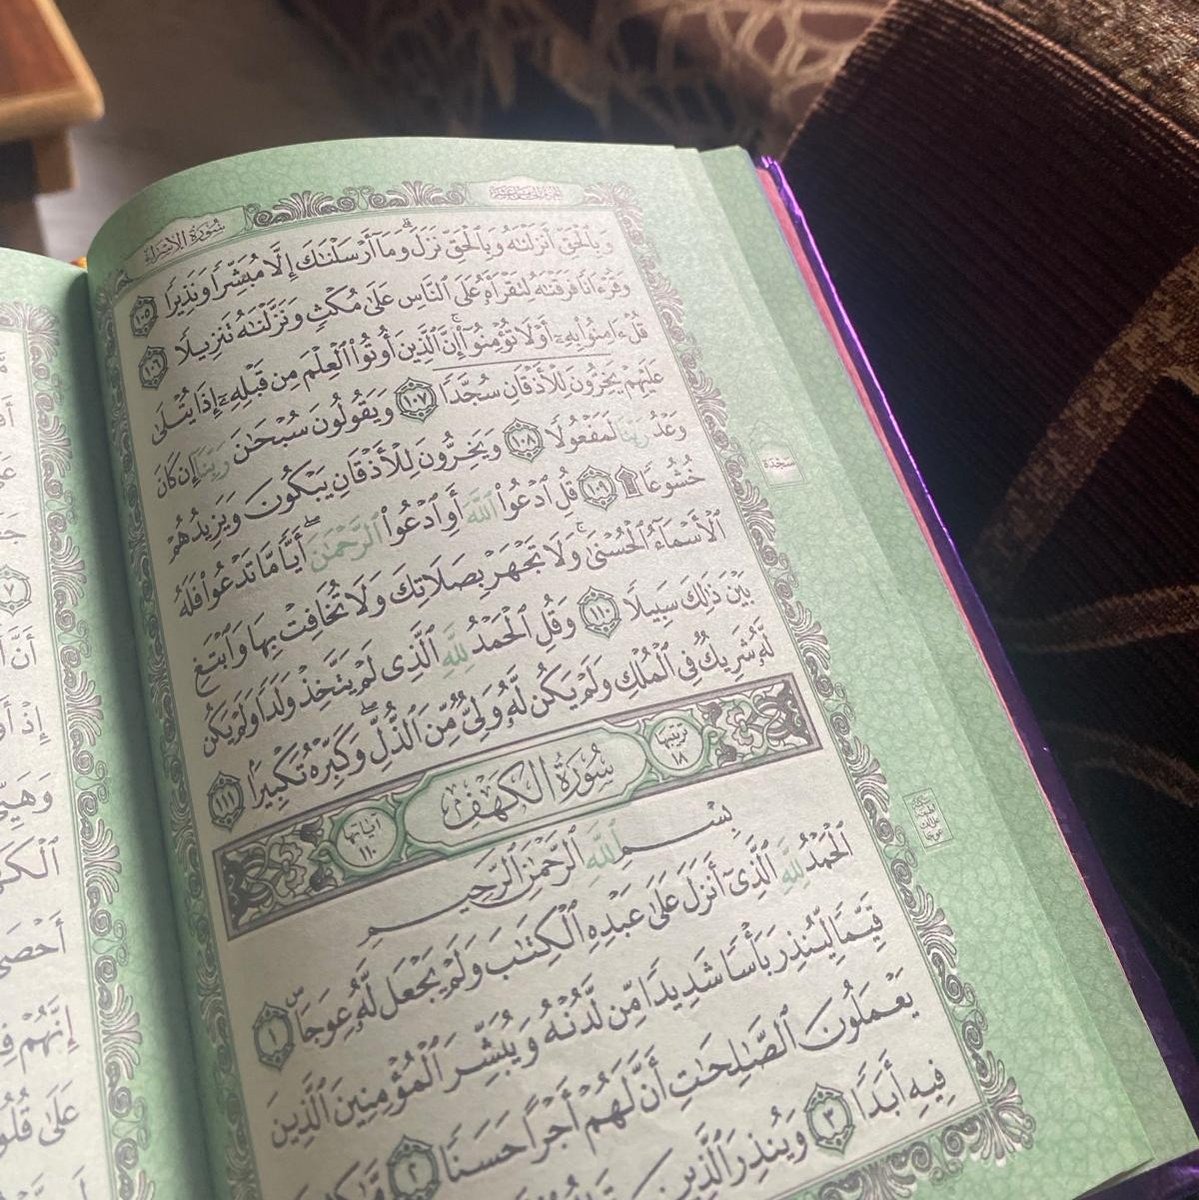 سُورَةُ الإِسْرَاءِ
الجزء الخامس عشر
وَبِٱلْحَقِّ أَنزَلْنَٰهُ وَبِٱلْحَقِّ نَزَلَ ۗ وَمَآ أَرْسَلْنَٰكَ إِلَّا مُبَشِّرًا وَنَذِيرًا ١٠٥
وَقُرْءَانًا فَرَقْنَٰهُ لِتَقْرَأَهُۥ عَلَى ٱلنَّاسِ عَلَىٰ مُكْثٍ وَنَزَّلْنَٰهُ تَنزِيلًا ١٠٦
قُلْ ءَامِنُوا۟ بِهِۦٓ أَوْ لَا تُؤْمِنُوٓا۟ ۚ إِنَّ ٱلَّذِينَ أُوتُوا۟ ٱلْعِلْمَ مِن قَبْلِهِۦٓ إِذَا يُتْلَىٰ
عَلَيْهِمْ يَخِرُّونَ لِلْأَذْقَانِ سُجَّدًا ١٠٧ وَيَقُولُونَ سُبْحَٰنَ رَبِّنَآ إِن كَانَ
وَعْدُ رَبِّنَا لَمَفْعُولًا ١٠٨ وَيَخِرُّونَ لِلْأَذْقَانِ يَبْكُونَ وَيَزِيدُهُمْ
خُشُوعًا ۩ ١٠٩ قُلِ ٱدْعُوا۟ ٱللَّهَ أَوِ ٱدْعُوا۟ ٱلرَّحْمَٰنَ ۖ أَيًّا مَّا تَدْعُوا۟ فَلَهُ
ٱلْأَسْمَآءُ ٱلْحُسْنَىٰ ۚ وَلَا تَجْهَرْ بِصَلَاتِكَ وَلَا تُخَافِتْ بِهَا وَٱبْتَغِ
بَيْنَ ذَٰلِكَ سَبِيلًا ١١٠ وَقُلِ ٱلْحَمْدُ لِلَّهِ ٱلَّذِى لَمْ يَتَّخِذْ وَلَدًا وَلَمْ يَكُن
لَّهُۥ شَرِيكٌ فِى ٱلْمُلْكِ وَلَمْ يَكُن لَّهُۥ وَلِىٌّ مِّنَ ٱلذُّلِّ ۖ وَكَبِّرْهُ تَكْبِيرًا ١١١
ترتيبها ١٨ سُورَةُ الكَهْفِ آياتها ١١٠
بِسْمِ ٱللَّهِ ٱلرَّحْمَٰنِ ٱلرَّحِيمِ
ٱلْحَمْدُ لِلَّهِ ٱلَّذِىٓ أَنزَلَ عَلَىٰ عَبْدِهِ ٱلْكِتَٰبَ وَلَمْ يَجْعَل لَّهُۥ عِوَجَا ۜ ١
قَيِّمًا لِّيُنذِرَ بَأْسًا شَدِيدًا مِّن لَّدُنْهُ وَيُبَشِّرَ ٱلْمُؤْمِنِينَ ٱلَّذِينَ
يَعْمَلُونَ ٱلصَّٰلِحَٰتِ أَنَّ لَهُمْ أَجْرًا حَسَنًا ٢ مَّٰكِثِينَ
فِيهِ أَبَدًا ٣ وَيُنذِرَ ٱلَّذِينَ
سَجْدَة
٧
أَنَّ
إِذْ
وَهَيِّئْ
أَحْصَىٰ
إِنَّهُمْ
عَلَىٰ